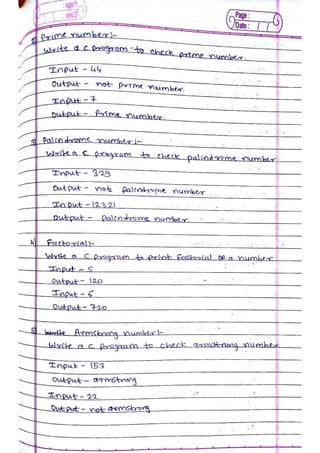 Page:
Date:
2) Prime number:-
Write a C program to check prime number.
Input - 44
Output - not prime number.
Input - 7
Output - Prime number
3) Palindrome number:-
Write a C program to check palindrome number
Input - 329
Output - not Palindrome number
Input - 12321
Output - Palindrome number
4) Factorial:-
Write a C program to print factorial of a number
Input - 5
Output - 120
Input - 6
Output - 720
5) Write Armstrong number:-
Write a C program to check armstrong number
Input - 153
Output - armstrong
Input - 22
Output - not armstrong